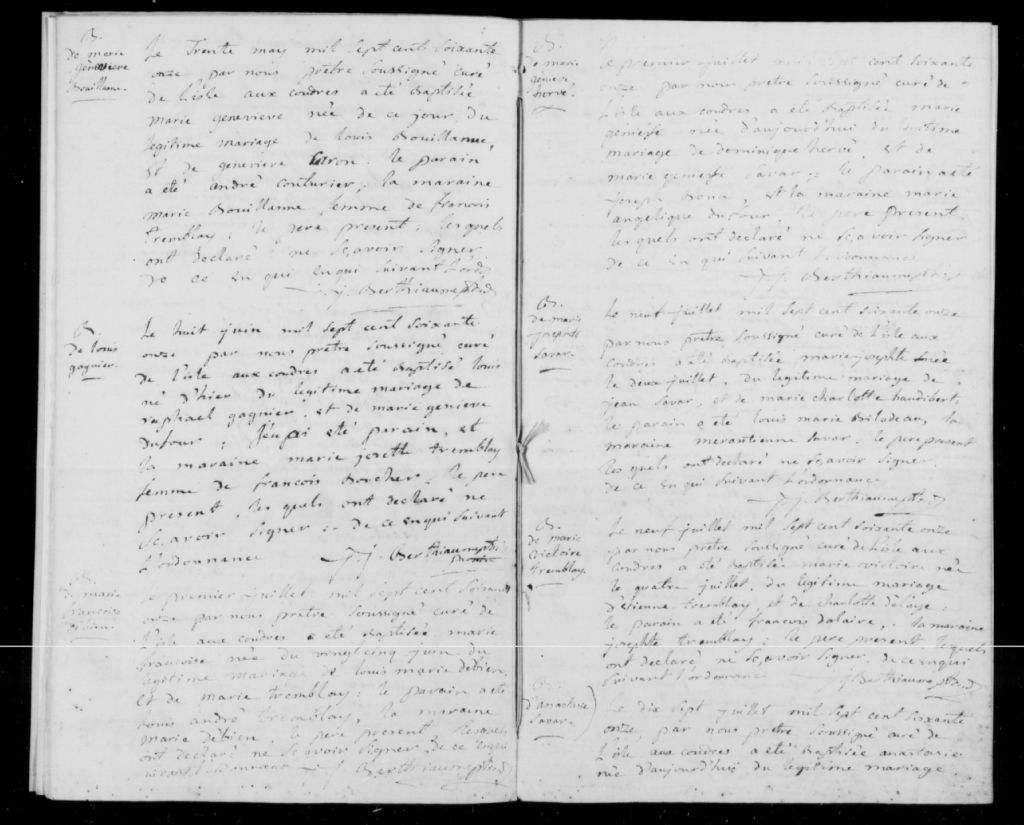 B.
De marie
genevieve
Bouillanne.
Le Trente may mil sept cent soixante
onze par nous prêtre soussigné curé
de l'isle aux coudres a été Baptisée
marie genevieve née de ce jour, du
legitime mariage de louis Bouillanne,
et de genevieve : le parain
a été andré couturier, la maraine
marie Bouillanne femme de francois
tremblay. le pere present. les quels
ont declaré ne sçavoir signer
de ce en qui en qui suivant l'ord.
J. Berthiaume ptre
B.
De louis
gagnier.
Le huit juin mil sept cent soixante
onze par nous prêtre soussigné curé
de l'isle aux coudres a été Baptisé louis
né d'hier du legitime mariage de
raphael gagnier, et de marie genieve
Dufour ; été parain, et
la maraine marie josette tremblay
femme de francois Boucher. le pere
present, les quels ont declaré ne
sçavoir signer de ce en qui suivant
L'ordonnance J. Berthiaume ptre
B.
De marie
francoise
Debien.
Le premier juillet mil sept cent soixante
onze par nous prêtre soussigné curé de
l'isle aux coudres a été Baptisée marie
francoise née du vingt cinq juin du
legitime mariage de louis marie debien,
et de marie tremblay ; le parain a été
louis andré tremblay, la maraine
marie Debien le pere present, lesquels
ont declaré ne sçavoir signer de ce enqui
suivant l'ordonnance J. Berthiaume ptre
B.
De marie
genieve
hervé.
Le premier juillet mil sept cent soixante
onze par nous prêtre soussigné curé de
l'isle aux coudres a été Baptisée marie
genieve née d'aujourd'hui du legitime
mariage de dominique hervé, et de
marie genieve Savar ; le parain a été
Joseph Bona, et la maraine marie
angelique Dufour, le pere present
les quels ont declaré ne sçavoir signer
de ce en qui suivant l'ordonnance
J. Berthiaume ptre
B.
de marie
josephte
Savar.
Le neuf juillet mil sept cent soixante onze
par nous prêtre soussigné curé de l'isle aux
coudres a été Baptisée marie josephte née
le deux juillet, du legitime mariage de
jean Savar, et de marie charlotte
le parain a été louis marie Bilodeau, la
maraine Savar. le pere present
les quels ont declaré ne sçavoir signer.
de ce en qui suivant l'ordonnance
J. Berthiaume ptre
B.
de marie
victoire
tremblay.
Le neuf juillet mil sept cent soixante onze
par nous prêtre soussigné curé de l'isle aux
coudres a été Baptisée marie victoire née
le quatre juillet, du legitime mariage
d'etienne tremblay, et de charlotte
le parain a été francois Dalaire, la maraine
josephte tremblay : le pere present lesquels
ont declaré ne sçavoir signer, de ce en qui
suivant l'ordonnance J. Berthiaume ptre
B.
d'anastasie
Savar.
Le dix sept juillet mil sept cent soixante
onze, par nous prêtre soussigné curé de
l'isle aux coudres a été Baptisée anastasie
née d'aujourd'hui du legitime mariage